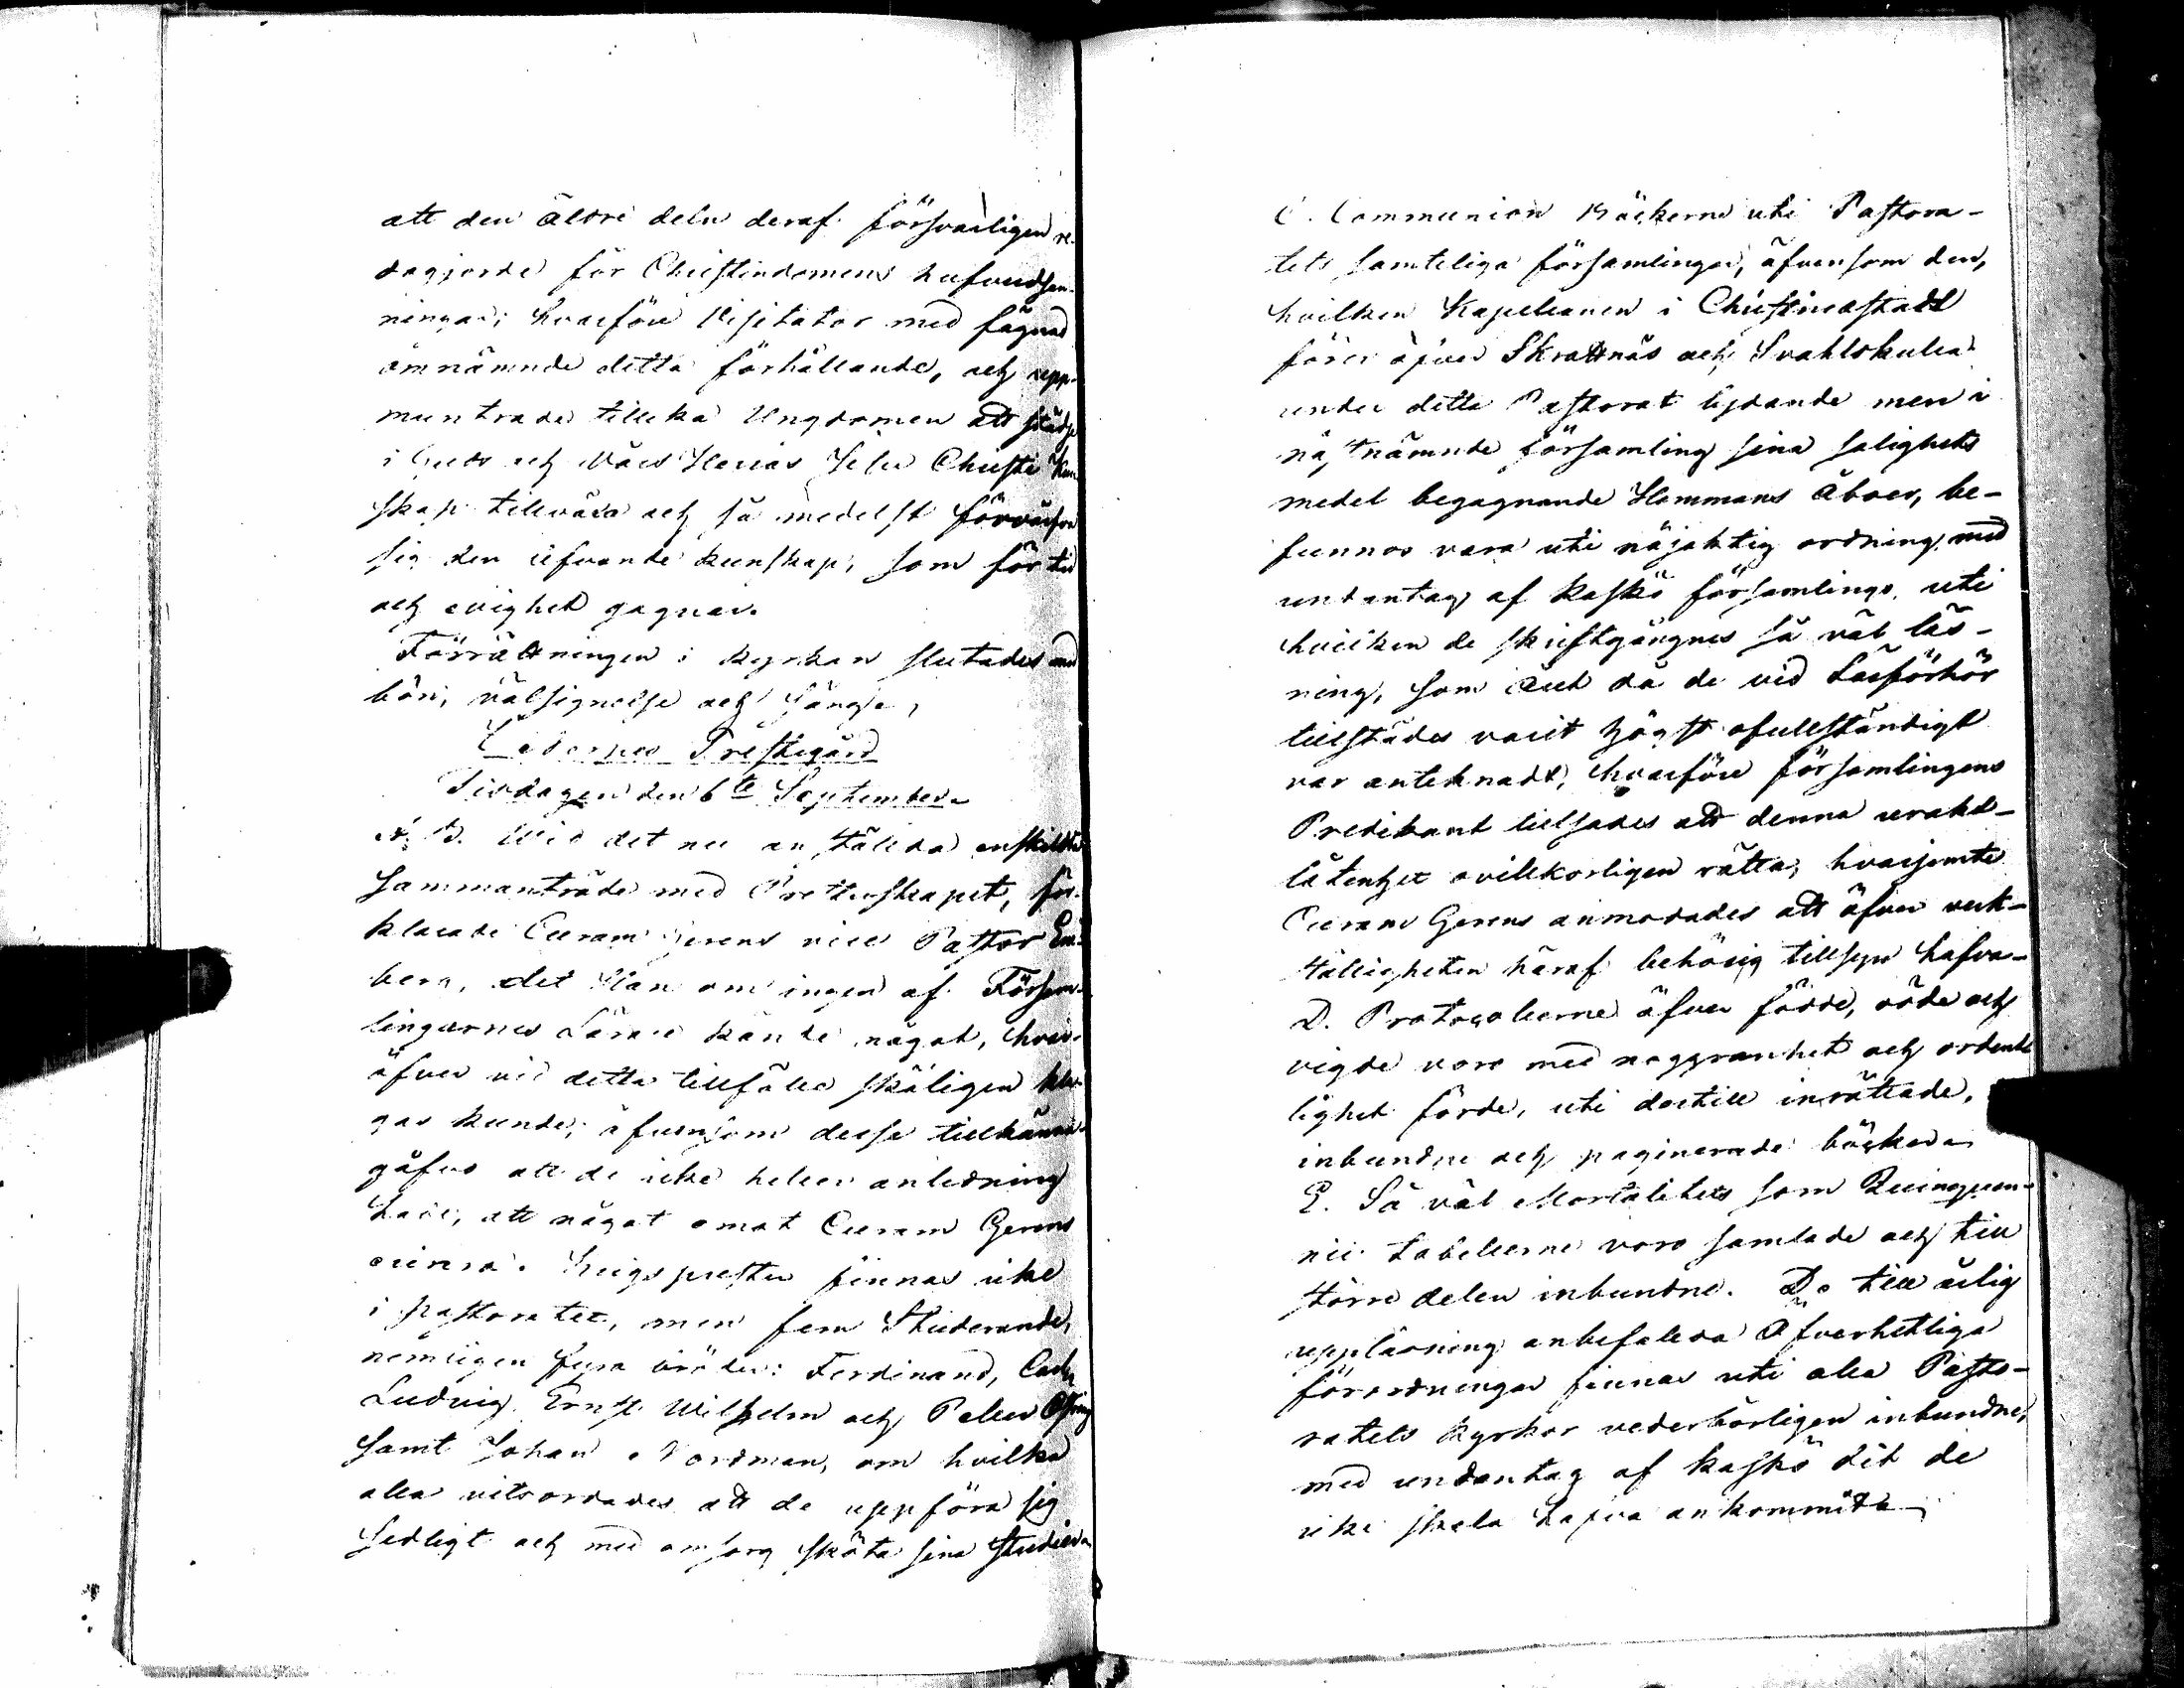 att den äldre delen deraf försvarligen re-
dogjorde för Christendomens hufvudsan-
ningar; hvarföre Visitator med fägnad
omnämnde detta förhållande, och upp-
muntrade tillika Ungdomen att städse
i Guds och Vårs Herras Jesu Christi Kun-
skap tillväxa och så medelst förvärfva
sig den lefvande kunskap, som för tid
och evighet gagnar.
Förrättningen i kyrkan slutades med
bön, välsignelse och sång.
Prestegård
Tisdagen den 6te September
Wid det nu anstälda enskildta
Sammanträde med Presterskapet, för-
klarade Curam Gerens vice Pastor
berg, det Han om ingen af Försam-
lingarnes Lärare kände något, hvar-
öfver vid detta tillfälle skäligen kla-
gas kunde, äfvensom desse tillkänna-
gåfvo att de icke heller anledning
hade, att något emot Curam Gerens
erinra. Krigsprester finnas icke
i pastoratet, men fem Studerande,
nemligen fyra bröder: Ferdinand, Carl
Ludvig, Ernst Wilhelm och
samt Johan Nordman, om hvilka
alla vitsordades att de uppföra sig
sedligt och med omsorg sköta sina studier.
C. Communion Böckerne uti Pastora-
tets samteliga församlingar, äfvensom den,
hvilken Kapellanen i Christinæstadt
förer öfver Skrattnäs och
under detta Pastorat lydande men i
näst nämnde församling sina salighets
medel begagnande Hemmans Åboer, be-
funnos vara uti nöjaktig ordning med
undantag af Kaskö församlings, uti
hvilken de skriftgångnes så väl läs-
ning, som ock då de vid Läsförhör
tillstädes varit högst ofullständigt
var antecknadt, hvarföre församlingens
Predikant tillsades att denna urakt-
låtenhet ovillkorligen rätta, hvarjemte
Curam Gerens anmodades att öfver verk-
ställigheten häraf behörig tillsyn hafva.
D. Protocollerne öfver födde, döde och
vigde voro med noggranhet och ordent-
lighet förde, uti dertill inrättade,
inbundne och paginerade böcker.
E. Så väl Mortalitets som Quinquen-
nii tabellerne voro samlade och till
större delen inbundne. De till årlig
uppläsning anbefallda Öfverhetliga
förordningar finnas uti alla Pasto-
ratets kyrkor vederbörligen inbundne,
med undantag af Kaskö dit de
icke skola hafva ankommit.